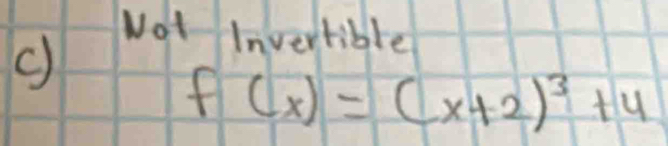 Not Invertible
c)
f(x) = (x+2)³ + 4